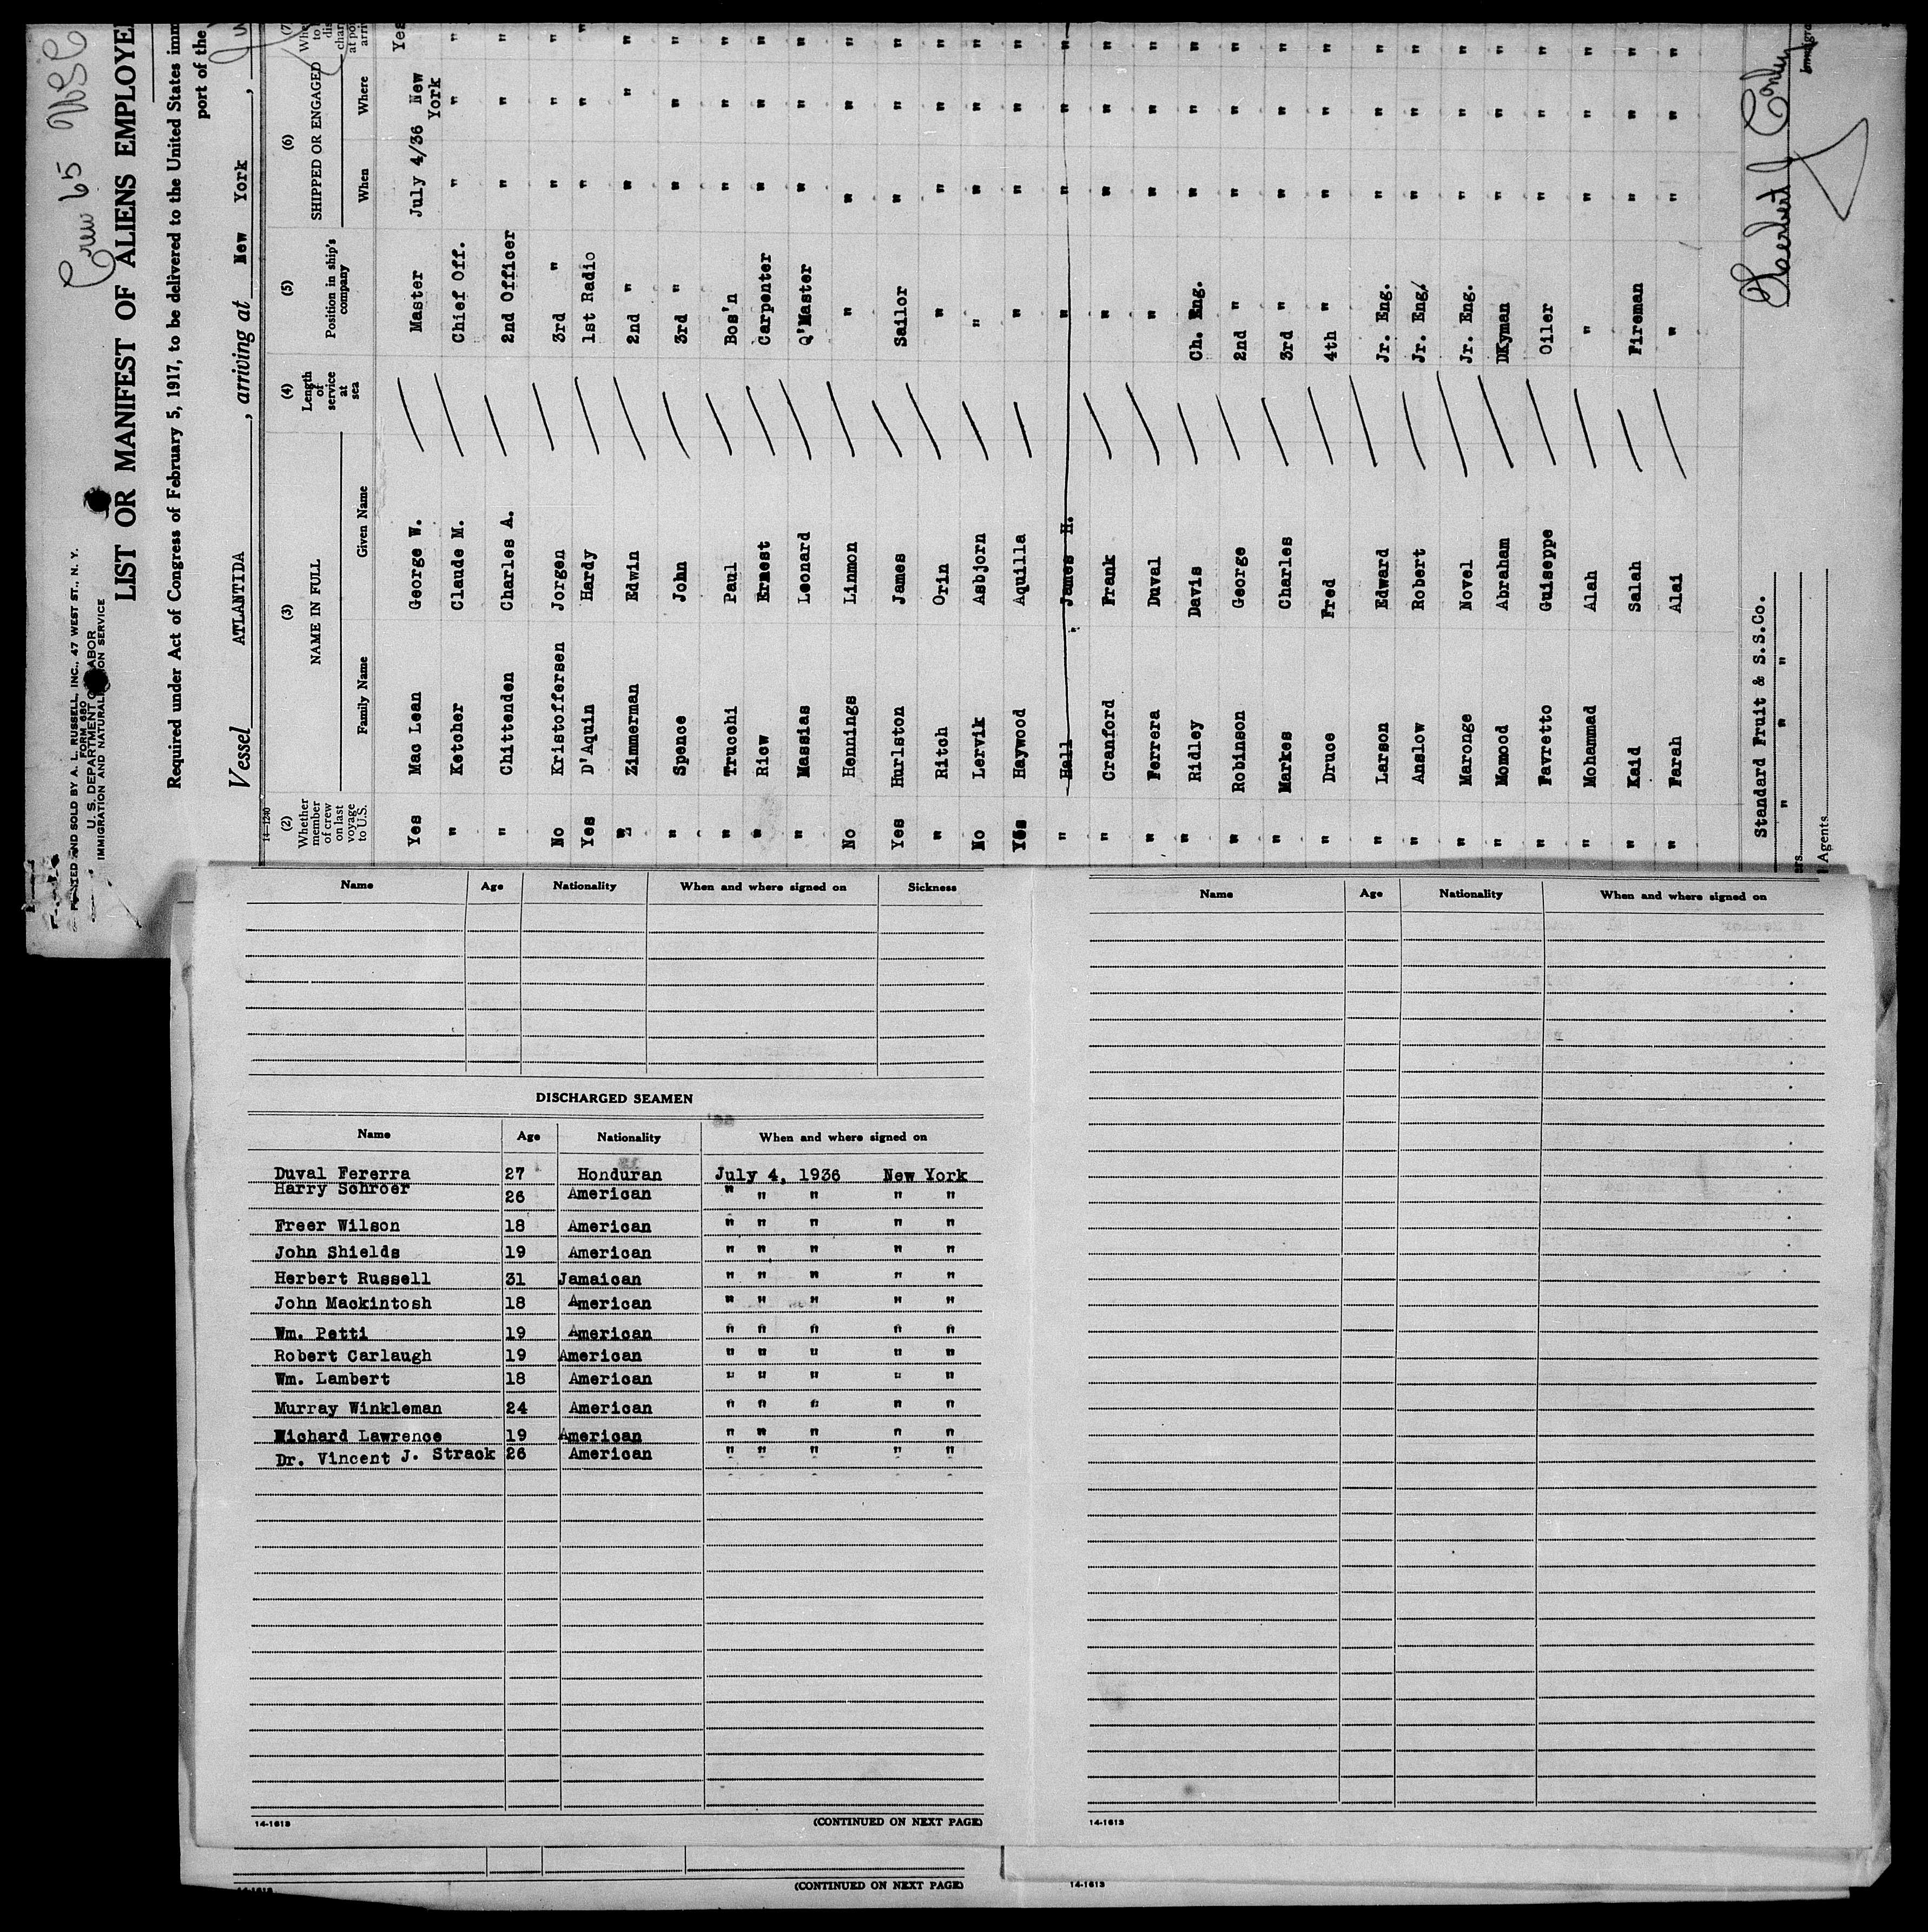 Crew 65
PRINTED AND SOLD BY A. L. RUSSELL, INC., 47 WEST ST., N. Y.
FORM 680
U. S. DEPARTMENT OF LABOR
IMMIGRATION AND NATURALIZATION SERVICE
LIST OR MANIFEST OF ALIENS EMPLOYE
Required under Act of Congress of February 5, 1917, to be delivered to the United States imm
port of the
Vessel ATLANTIDA, arriving at New York,
14—1240
(2) Whether member of crew on last voyage to U.S. (3) NAME IN FULL Family Name Given Name (4) Length of service at sea (5) Position in ship's company (6) SHIPPED OR ENGAGED When Where (7)
Yes Mac Lean George W. Master July 4/36 New York Yes
" Ketcher Claude M. Chief Off. " " "
" Chittenden Charles A. 2nd Officer " " "
No Kristoffersen Jorgen 3rd " " " "
Yes D'Aquin Hardy 1st Radio " " "
" Zimmerman Edwin 2nd " " " "
" Spence John 3rd " " " "
" Trucchi Paul Bos'n " " "
" Riew Ernest Carpenter " " "
" Massias Leonard Q'Master " " "
No Hennings Linmon " " " "
Yes Hurlston James Sailor " " "
" Ritch Orin " " " "
No Lervik Asbjorn " " " "
Yes Haywood Aquilla " " " "
" Hall James H. " " " "
" Cranford Frank " " " "
" Ferrera Duval " " " "
" Ridley Davis Ch. Eng. " " "
" Robinson George 2nd " " " "
" Markes Charles 3rd " " " "
" Druce Fred 4th " " " "
" Larson Edward Jr. Eng. " " "
" Anslow Robert Jr. Eng. " " "
" Maronge Novel Jr. Eng. " " "
" Momood Abraham DKyman " " "
" Favretto Guiseppe Oiler " " "
" Mohammad Alah " " " "
" Kaid Salah Fireman " " "
" Farah Alai " " " "
Standard Fruit & S.S.Co.
" " "
Agents
Herbert Conley
Name Age Nationality When and where signed on Sickness
DISCHARGED SEAMEN
Name Age Nationality When and where signed on
Duval Fererra 27 Honduran July 4, 1936 New York
Harry Schroer 26 American " " " " "
Freer Wilson 18 American " " " " "
John Shields 19 American " " " " "
Herbert Russell 31 Jamaican " " " " "
John Mackintosh 18 American " " " " "
Wm. Petti 19 American " " " " "
Robert Carlaugh 19 American " " " " "
Wm. Lambert 18 American " " " " "
Murray Winkleman 24 American " " " " "
Richard Lawrence 19 American " " " " "
Dr. Vincent J. Strack 26 American " " " " "
14-1613 (CONTINUED ON NEXT PAGE)
(CONTINUED ON NEXT PAGE)
Name Age Nationality When and where signed on
14-1613
14-1613